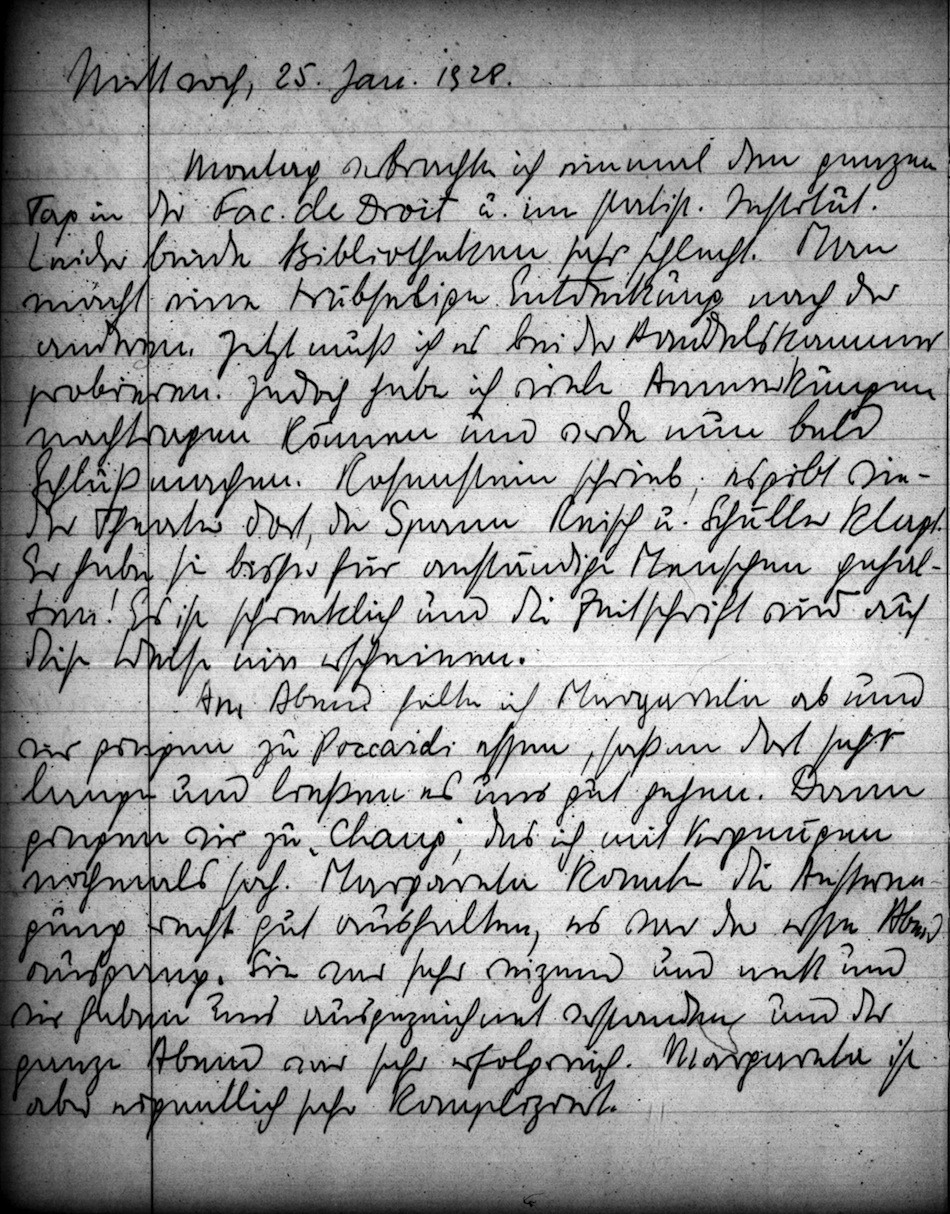 Mittwoch, 25. Jan. 1928.
Montag verbrachte ich einmal den ganzen
Tag in der Fac. de Droit u. im statist. Institut.
Leider beide Bibliotheken sehr schlecht. Man
macht eine trübselige Entdeckung nach der
anderen. Jetzt muß ich es bei der Handelskammer
probieren. Jedoch habe ich viele Anmerkungen
nachtragen können und werde nun bald
Schluß machen. Rosenstein schrieb, es gibt wie-
der Theater dort, da Spann Reisch u. Schüller klagt.
Er habe sie bisher für anständige Menschen gehal-
ten! Es ist schrecklich und die Zeitschrift wird auf
diese Weise nie erscheinen.
Am Abend holte ich Margareta ab und
wir gingen zu Poccardi essen, saßen dort sehr
lange und ließen es uns gut gehen. Dann
gingen wir zu „Chang“, das ich mit Vergnügen
nochmals sah. Margareta konnte die Anstren-
gung recht gut aushalten, es war der erste Abend
ausgang. Sie war sehr reizend und nett und
wir haben uns ausgezeichnet verstanden und der
ganze Abend war sehr erfolgreich. Margareta ist
aber eigentlich sehr kompliziert.